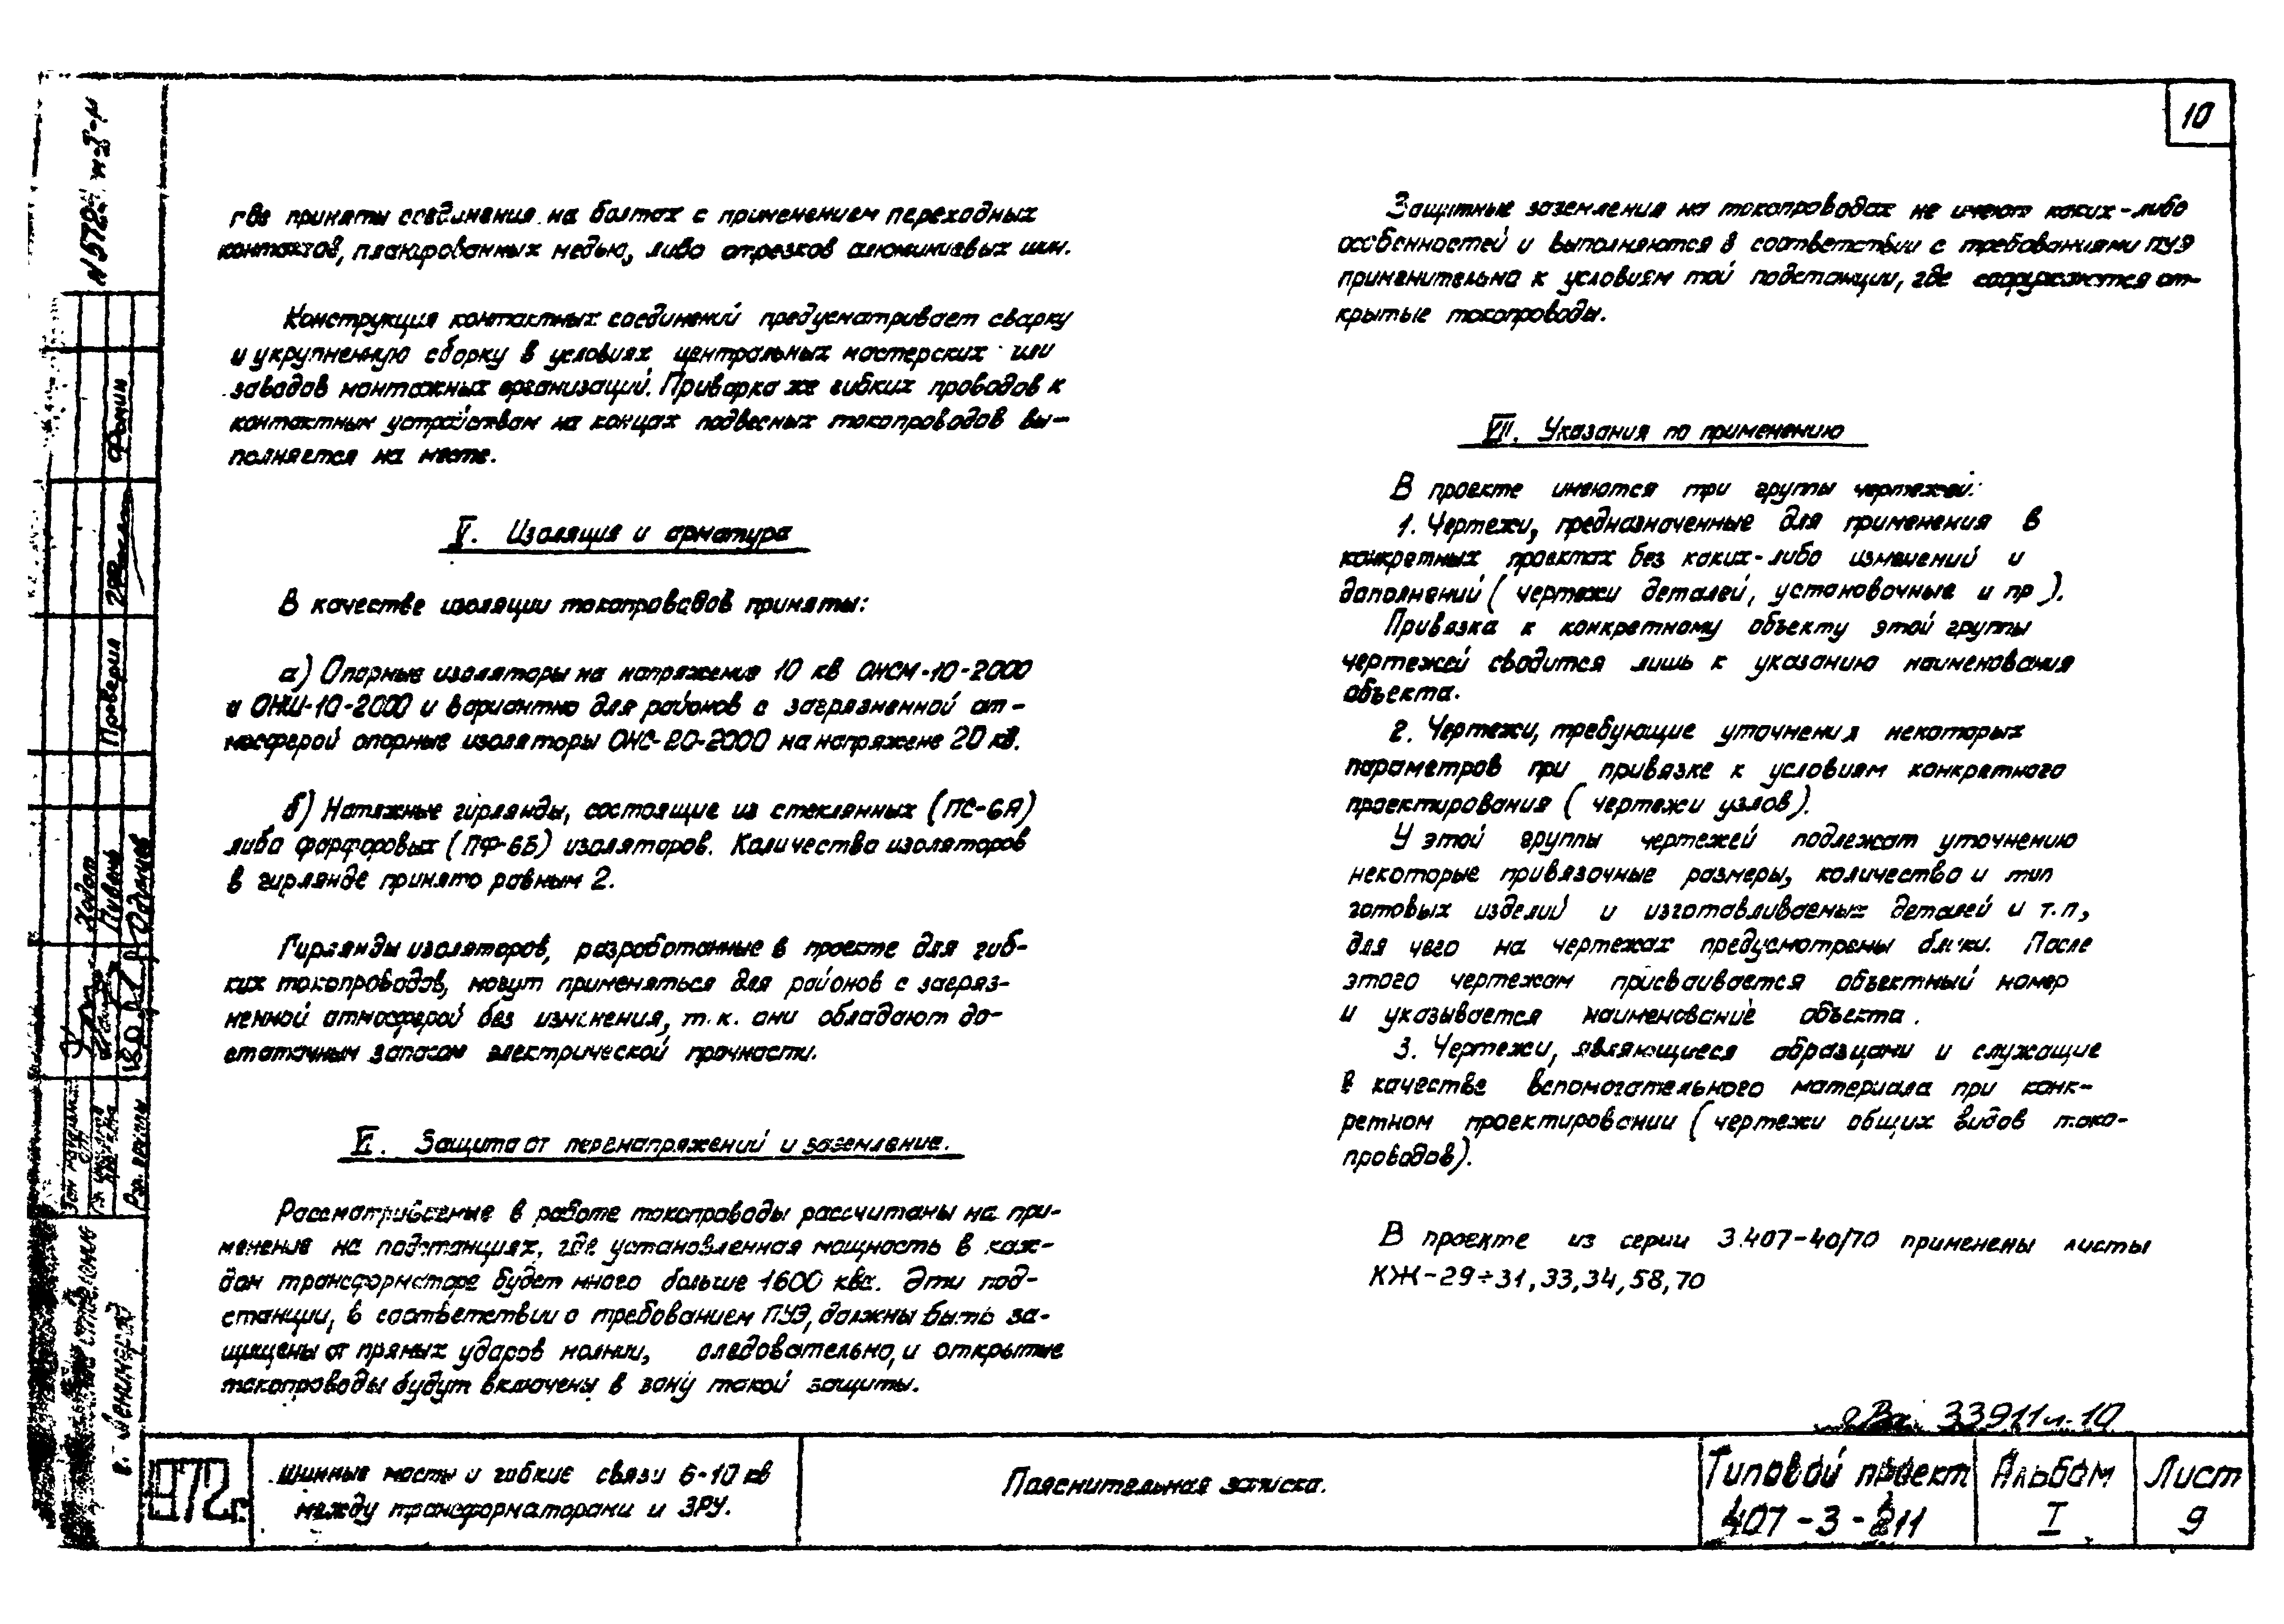 10
где приняты соединения на болтах с применением переходных
контактов, плакированных медью, либо отрезков алюминиевых шин.
Конструкция контактных соединений предусматривает сварку
и укрупненную сборку в условиях центральных мастерских или
заводов монтажных организаций. Приварка же гибких проводов к
контактным устройствам на концах подвесных токопроводов вы-
полняется на месте.
V. Изоляция и арматура
В качестве изоляции токопроводов приняты:
а) Опорные изоляторы на напряжение 10 кв ОНСМ-10-2000
и ОНШ-10-2000 и вариантно для районов с загрязненной ат-
мосферой опорные изоляторы ОНС-20-2000 на напряжене 20 кв.
б) Натяжные гирлянды, состоящие из стеклянных (ПС-6А)
либо фарфоровых (ПФ-6Б) изоляторов. Количество изоляторов
в гирлянде принято равным 2.
Гирлянды изоляторов, разработанные в проекте для гиб-
ких токопроводов, могут применяться для районов с загряз-
ненной атмосферой без изменения, т.к. они обладают до-
статочным запасом электрической прочности.
VI. Защита от перенапряжений и заземление.
Рассматриваемые в работе токопроводы рассчитаны на при-
менение на подстанциях, где установленная мощность в каж-
дом трансформаторе будет много больше 1600 ква. Эти под-
станции, в соответствии с требованием ПУЭ, должны быть за-
щищены от прямых ударов молнии, следовательно, и открытые
токопроводы будут включены в зону такой защиты.
Защитные заземления на токопроводах не имеют каких-либо
особенностей и выполняются в соответствии с требованиями ПУЭ
применительно к условиям той подстанции, где сооружаются от-
крытые токопроводы.
VII. Указания по применению
В проекте имеются три группы чертежей:
1. Чертежи, предназначенные для применения в
конкретных проектах без каких-либо изменений и
дополнений (чертежи деталей, установочные и пр).
Привязка к конкретному объекту этой группы
чертежей сводится лишь к указанию наименования
объекта.
2. Чертежи, требующие уточнения некоторых
параметров при привязке к условиям конкретного
проектирования (чертежи узлов).
У этой группы чертежей подлежат уточнению
некоторые привязочные размеры, количество и тип
готовых изделий и изготавливаемых деталей и т.п,
для чего на чертежах предусмотрены бланки. После
этого чертежам присваивается объектный номер
и указывается наименование объекта.
3. Чертежи, являющиеся образцами и служащие
в качестве вспомогательного материала при конк-
ретном проектировании (чертежи общих видов токо-
проводов).
В проекте из серии 3.407-40/70 применены листы
КЖ-29÷31, 33, 34, 58, 70
33911 10
1972г.
Шинные мосты и гибкие связи 6-10 кв
между трансформаторами и ЗРУ.
Пояснительная записка.
Типовой проект
407-3-211
Альбом
I
Лист
9
Фомин
Проверил
Ходот
г. Ленинград